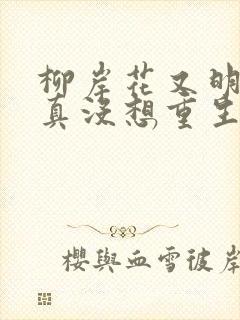 柳岸花又明
真没想重生
櫻與血雪彼岸